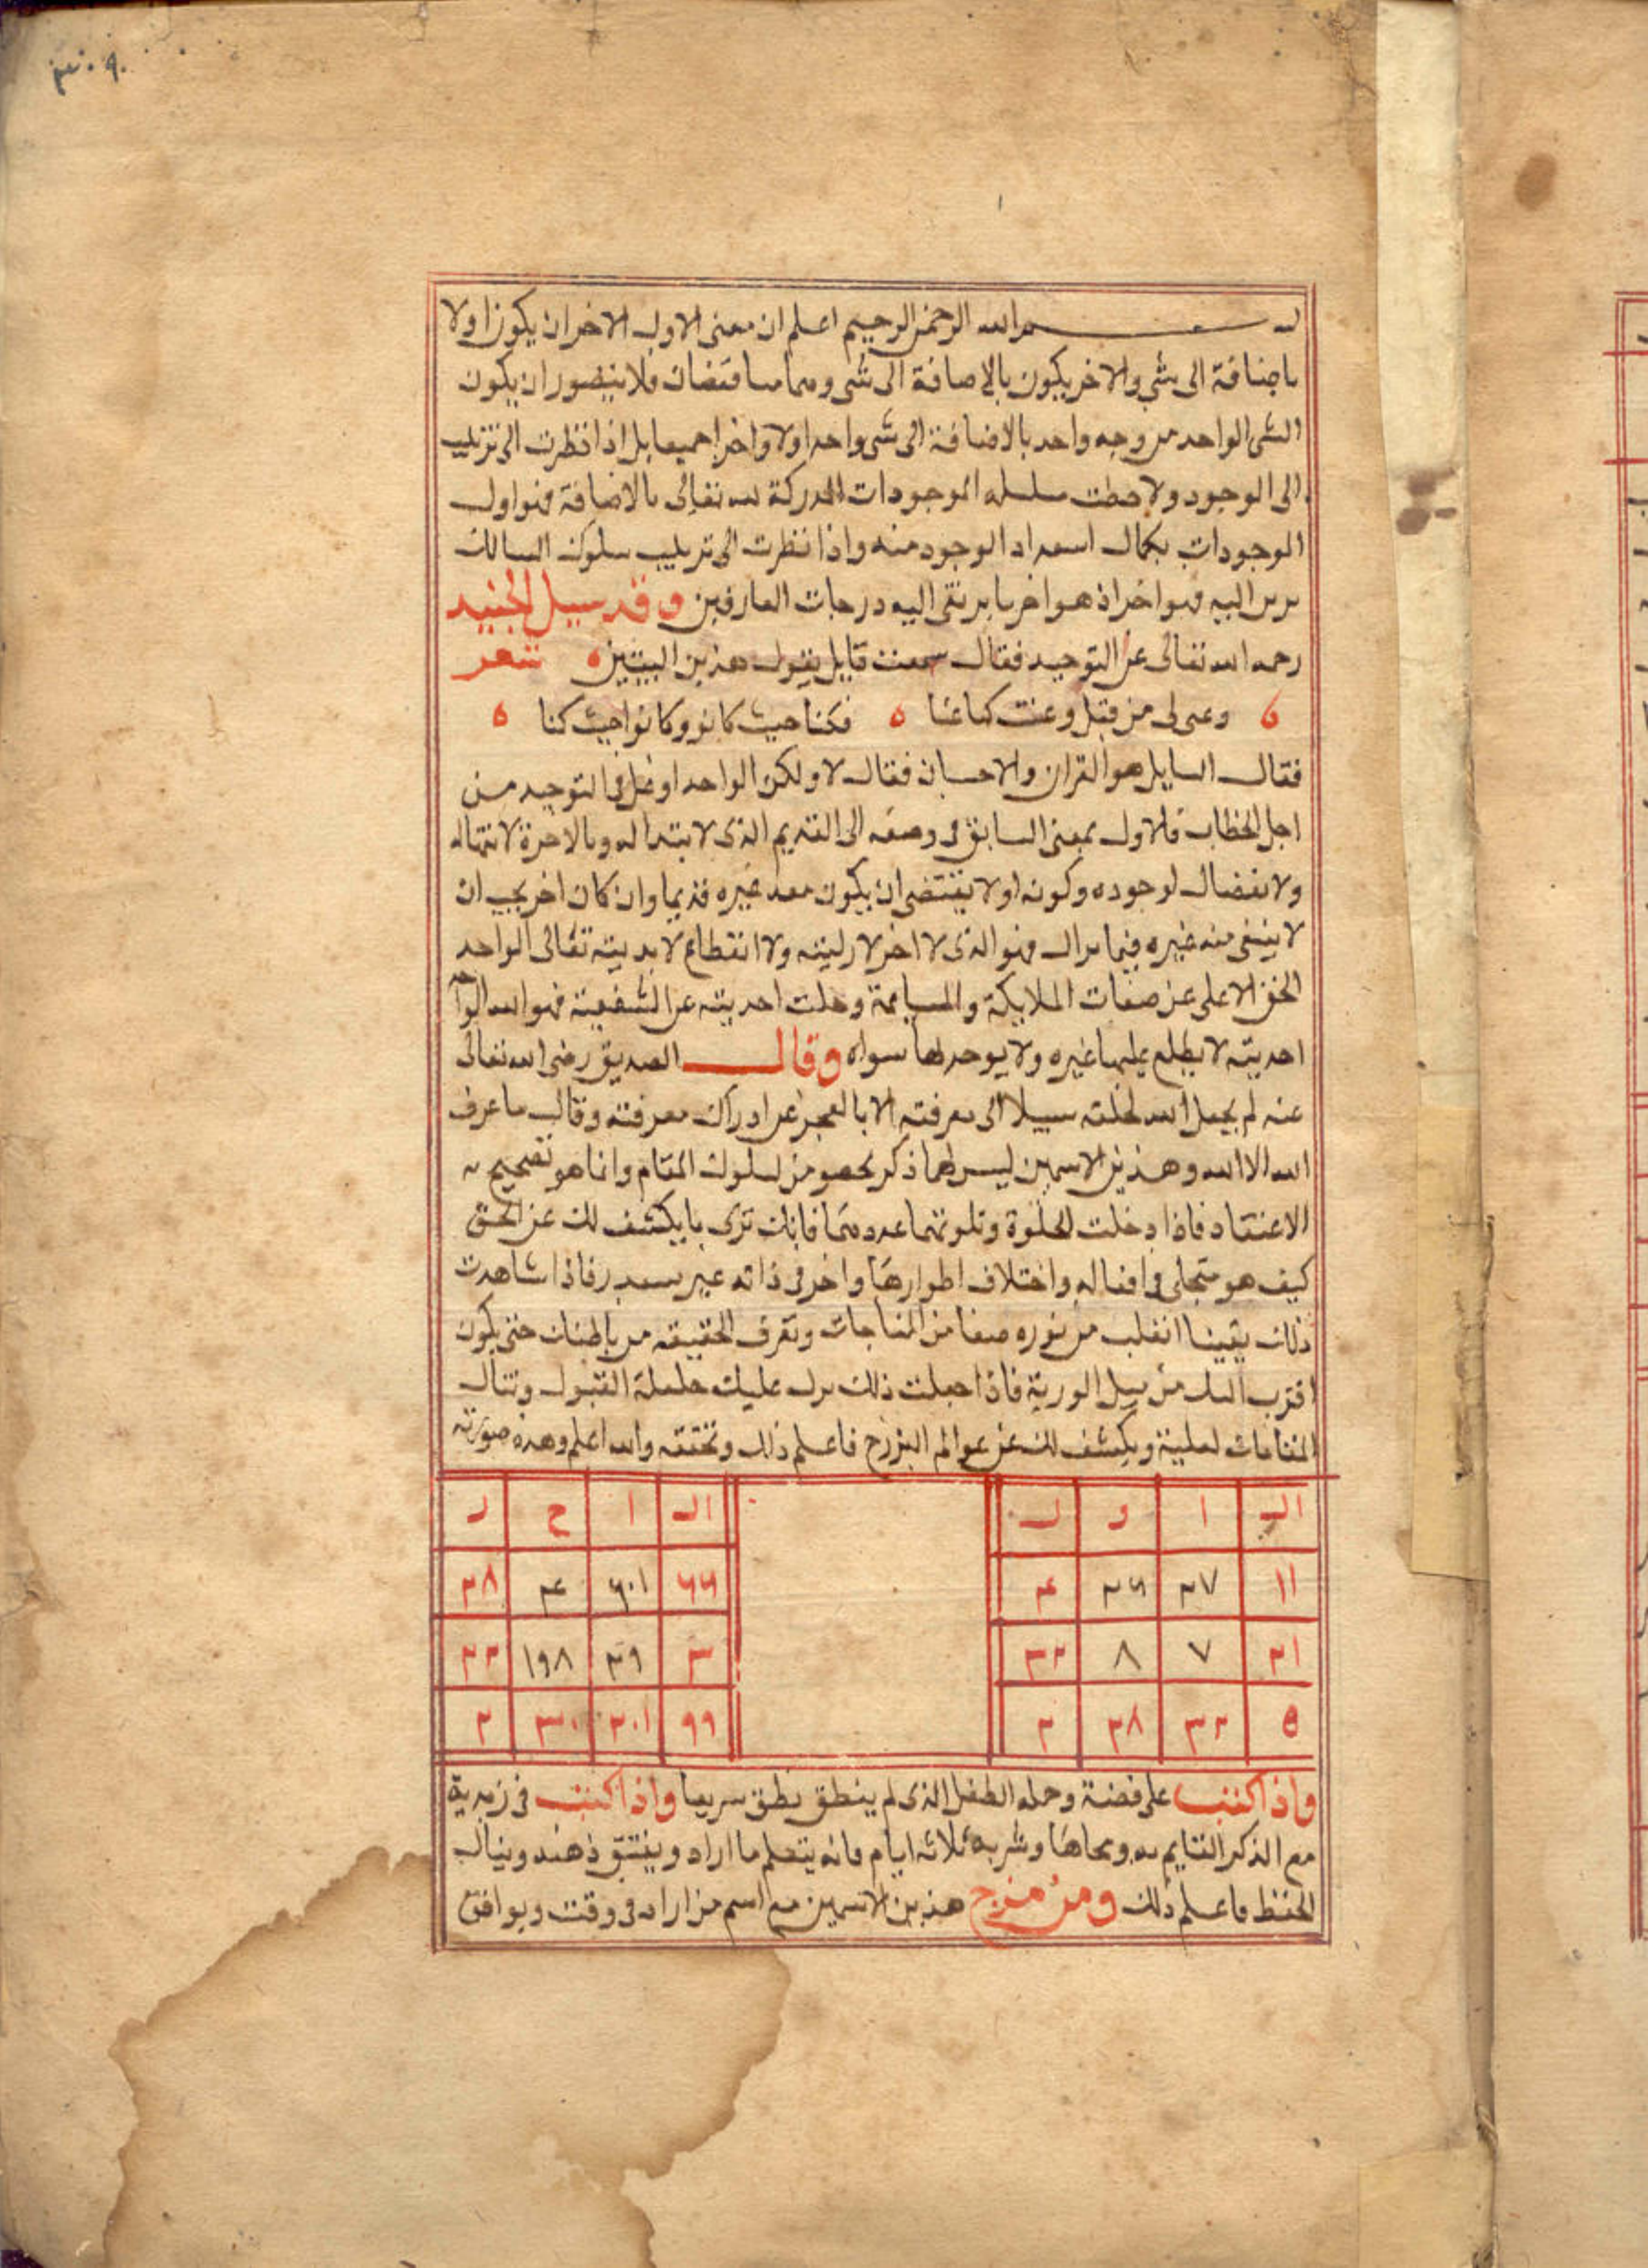 بسم الله الرحمن الرحيم اعلم ان معنى الاول الاخر ان يكون اولا
باضافة الى شي والاخر يكون بالاضافة الى شى وهما متناقضان فلا يتصور ان يكون
الشى الواحد من وجه واحد بالاضافة الى شى واحد اولا واخرا جميعا بل اذا نظرت الى ترتيب
الى الوجود ولاحظت سلسلة الموجودات المدركة لله تعالى بالاضافة فهو اول
الموجودات بكمال استمداد الوجود منه واذا نظرت الى ترتيب سلوك السالك
اليه فهو اخر اذ هو اخر ما يرتقى اليه درجات العارفين وقد سيل الجنيد
رحمه الله تعالى عن التوحيد فقال سمعت قايل يقول هذين البيتين شعر
وغنى لى من قبل وغنت كما غنا فكنا حيث كانو وكانوا حيث كنا
فقال السايل هو القران والاحسان فقال لا ولكن الواحد اوغل فى التوحيد من
اجل الخطاب فالاول بمعنى السابق فى وصفه الى القديم الذى لا ابتدا له وبالاخرة لا انتها له
ولا انفصال لوجوده وكونه اولا يقتضى ان يكون معه غيره قديما وان كان اخر يجب ان
لا يبقى منه غيره فيما يزال فهو الذى لا اخر لازليته ولا انقطاع لابديته تعالى الواحد
الحق الاعلى عن صفات الملايكة وجلت احديته عن الشفعية فهو الله الواحد
احديته لا يطلع عليها غيره ولا يوحدها سواه وقال الصديق رضى الله تعالى
عنه لم يجعل الله لخلقه سبيلا الى معرفته الا بالعجز عن ادراك معرفته وقال ما عرف
الله الا الله وهذين الاسمين ليس لهما ذكر من لسلوك المقام وانما هو تصحيح
الاعتقاد فاذا دخلت الخلوة وتلوتهما عددهما فانك ترى ما يكشف لك عن الحق
كيف هو متجلى فى افعاله واختلاف اطوارها واخر فى ذاته غير فاذا شاهدت
ذلك يقينا انقلب من نوره صفا من المناجات وتعرف الحقيقه من باطنك حتى يكون
اقرب اليك من حبل الوريد فاذا جعلت ذلك نزل عليك خلعة القبول وتنال
المقامات العلية ويكشف لك عن عوالم البرزخ فاعلم ذلك وتحققه والله اعلم وهذه صورته
الـ ا و ل
١١ ٢٧ ٢٦ ٤
٢١ ٧ ٨ ٣٢
٥ ٣٢ ٢٨ ٣
الـ ا خ ر
٦٦ ٦٠١ ٤ ٢٨
٣ ٢٩ ١٩٨
٩٩ ٢٠١ ٣٠ ٢
واذا كتب على فضة وحمله الطفل الذى لم ينطق نطق سريعا واذا كتب فى زبدية
مع الذكر القايم به ومحاها وشربه ثلاثه ايام فانه يتعلم ما اراد ويفتق ذهنه وينال
الحفظ فاعلم ذلك ومن مزج هذين الاسمين مع اسم من اراد فى وقت ويوافق